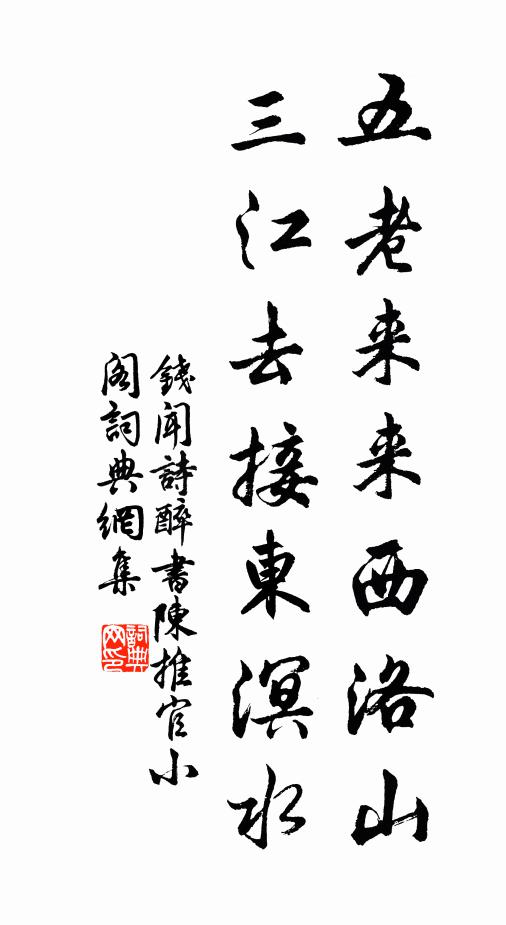 五老来来西洛山
三江去接東溟水
錢聞詩醉書陳推官小
閣詞典網集
詞典网印